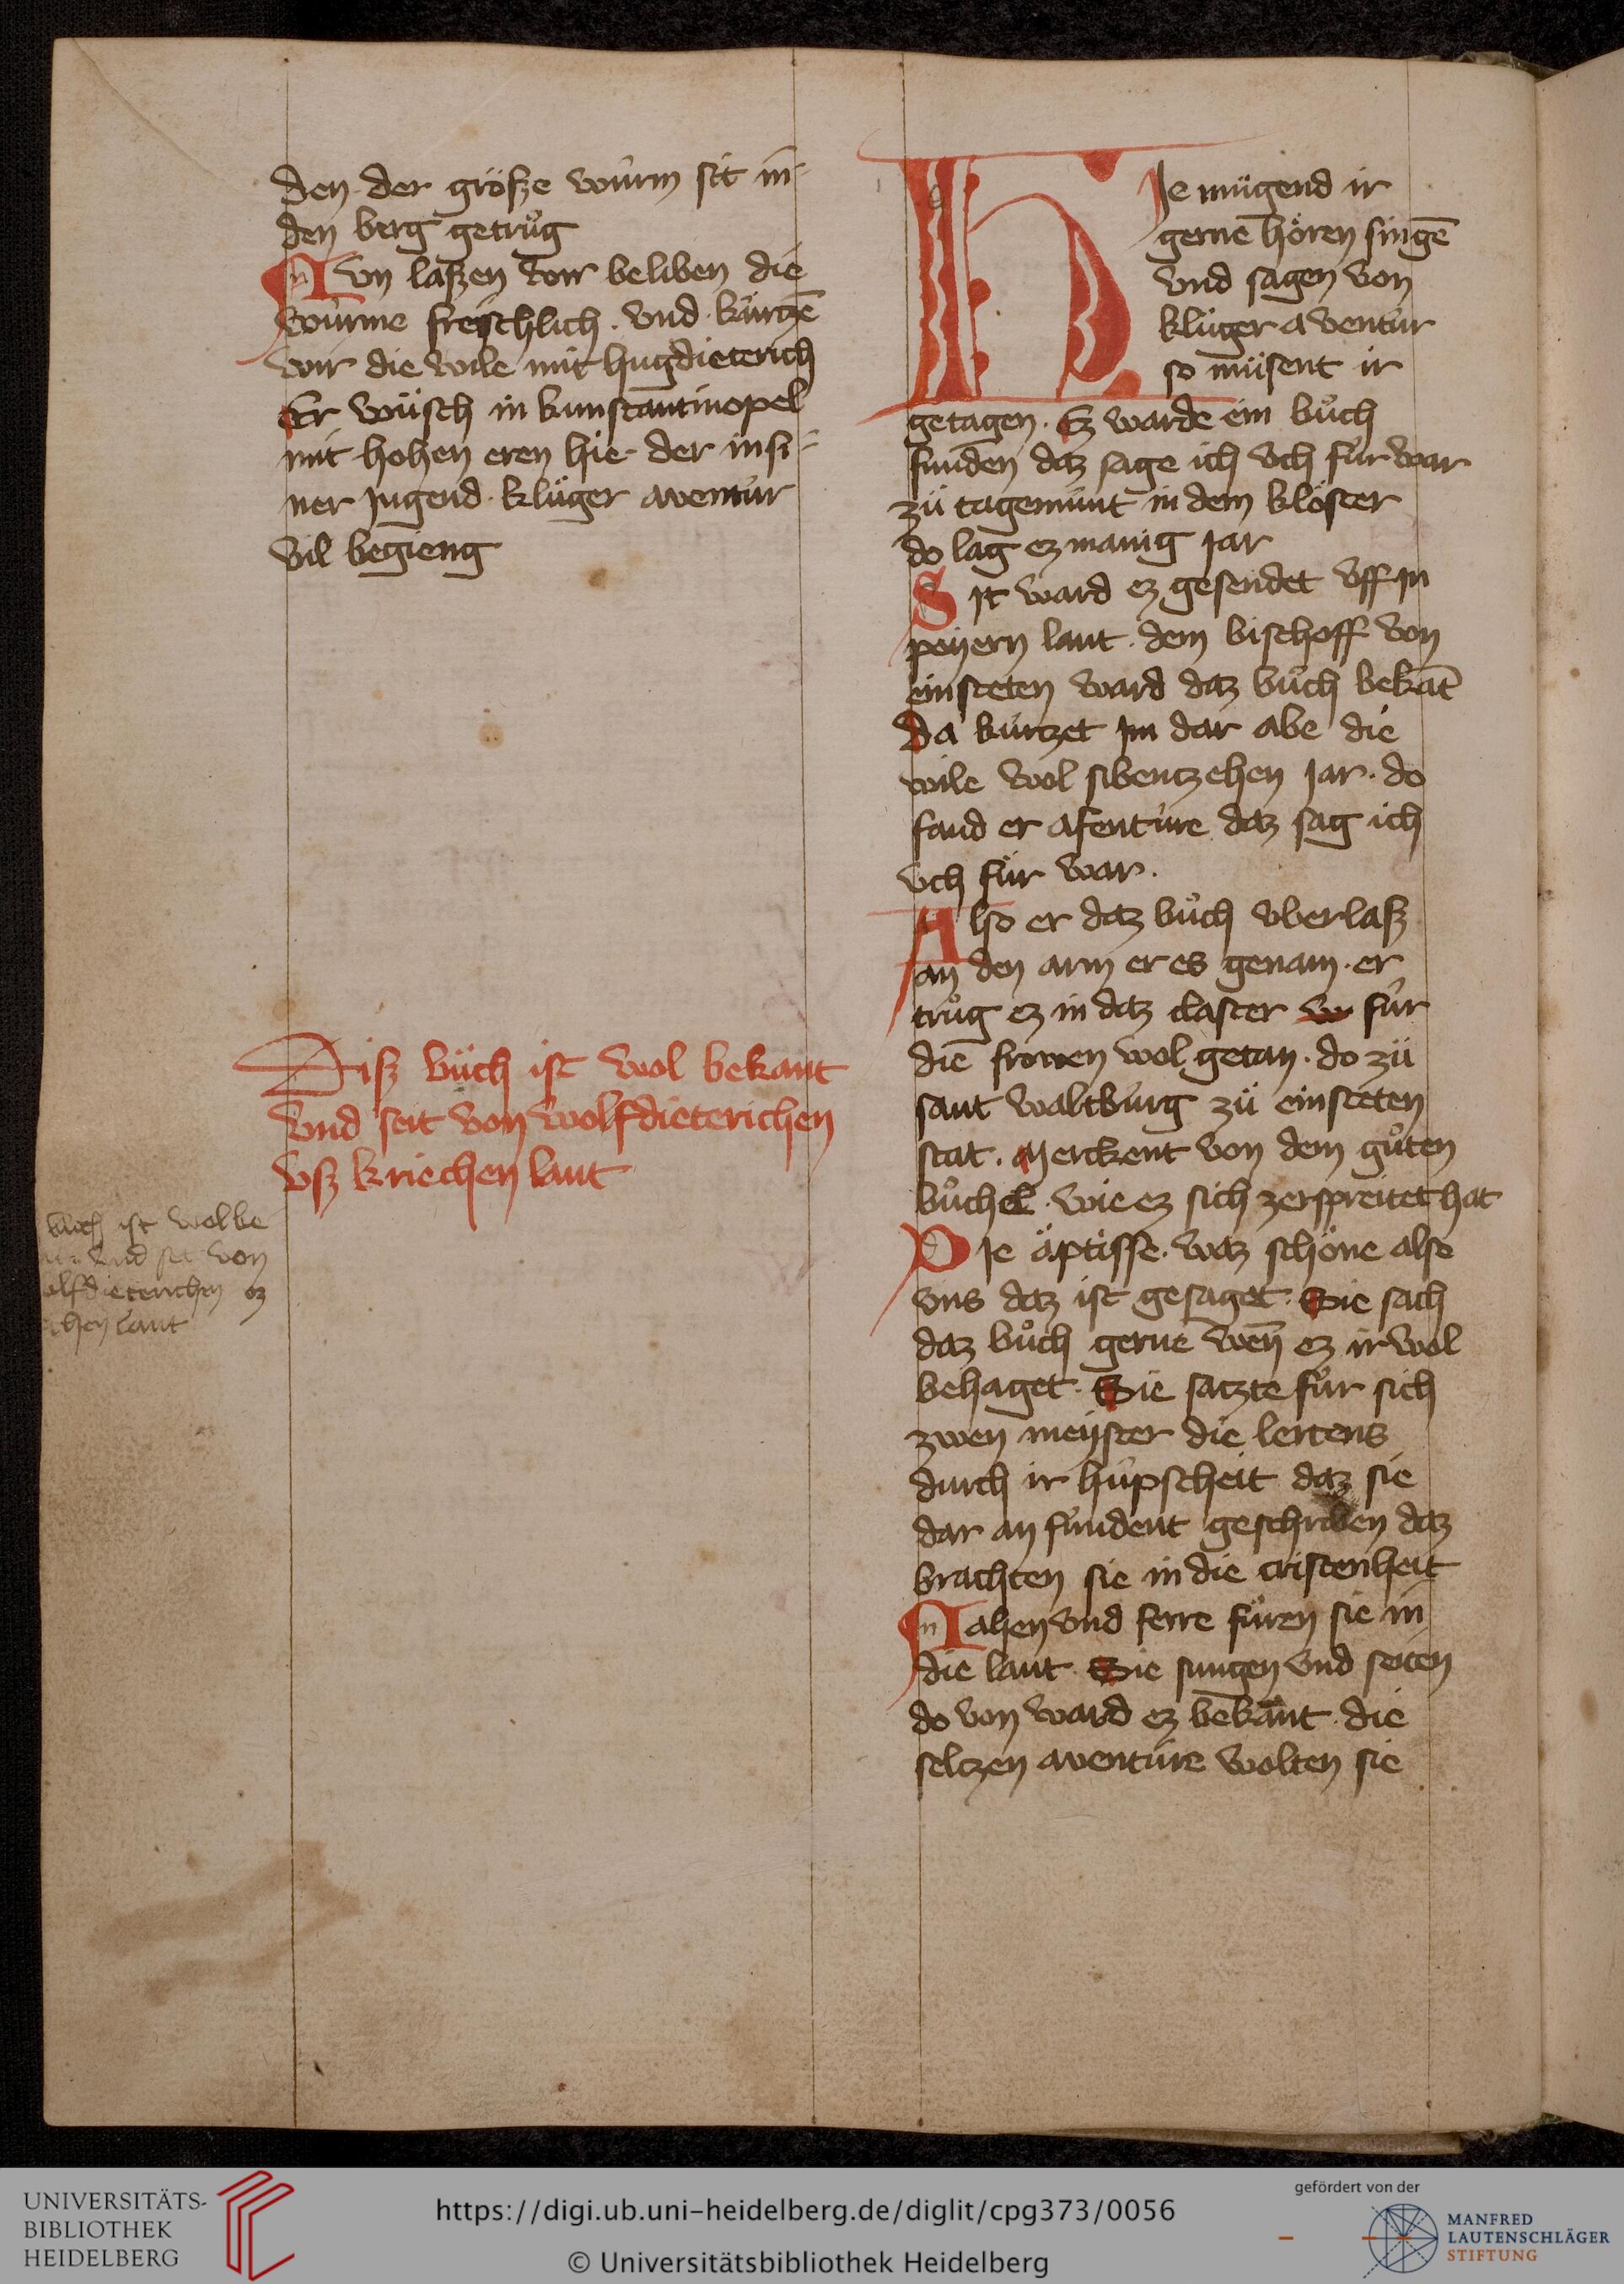 den der größe wůrm sit in
den berg getrůg
Nvn laßen wir beliben die
wůrme freischlich · vnd kürtzē
wir die wile mit hugdieterich
Er wüsch in kunstantinopel
mit hohen eren hie · der in si
ner jugend · klüger aventür
vil begieng
Diß büch ist wol bekant
vnd seit von wolfdieterichen
vß kriechen lant
büch ist wolbe
vnd seit von
olfdieterichen vz
chen lant
HJe mügend ir
gerne hören singē
vnd sagen von
klüger aventür
so müsent ir
getagen · Ez warde ein bůch
funden daz sage ich üch für war
zü tagemünt in dem klöster
do lag ez manig jar
Sjt ward ez gesendet vff jn
peyern lant · dem bischoff von
einsteten ward daz bůch bekāt
Da kürtzet jm dar abe die
wile wol sibentzehen jar · do
fand er afentüre daz sag ich
üch für war ·
Also er daz bůch vberlaß
an den arm er es genam · er
trůg ez in daz claster für
die frowen wol getan · do zü
sant waltbürg zü einsteten
stat · Merckent von dem gůten
bůchel · wie ez sich zerspreitet hat
Dje äptisse · waz schöne alse
vns daz ist gesaget · Sie sach
daz bůch gerne wen̄ ez ir wol
behaget · Sie satzte für sich
zwen meyster die lertens
durch ir hüpscheit daz sie
dar an fundent geschriben daz
brachten sie in die cristenheit
Nahen vnd ferre füren sie in
die lant · Sie sungen vnd seiten
do von ward ez bekant · die
seltzen aventüre wolten sie
UNIVERSITÄTS-
BIBLIOTHEK
HEIDELBERG
https://digi.ub.uni-heidelberg.de/diglit/cpg373/0056
© Universitätsbibliothek Heidelberg
gefördert von der
MANFRED
LAUTENSCHLÄGER
STIFTUNG